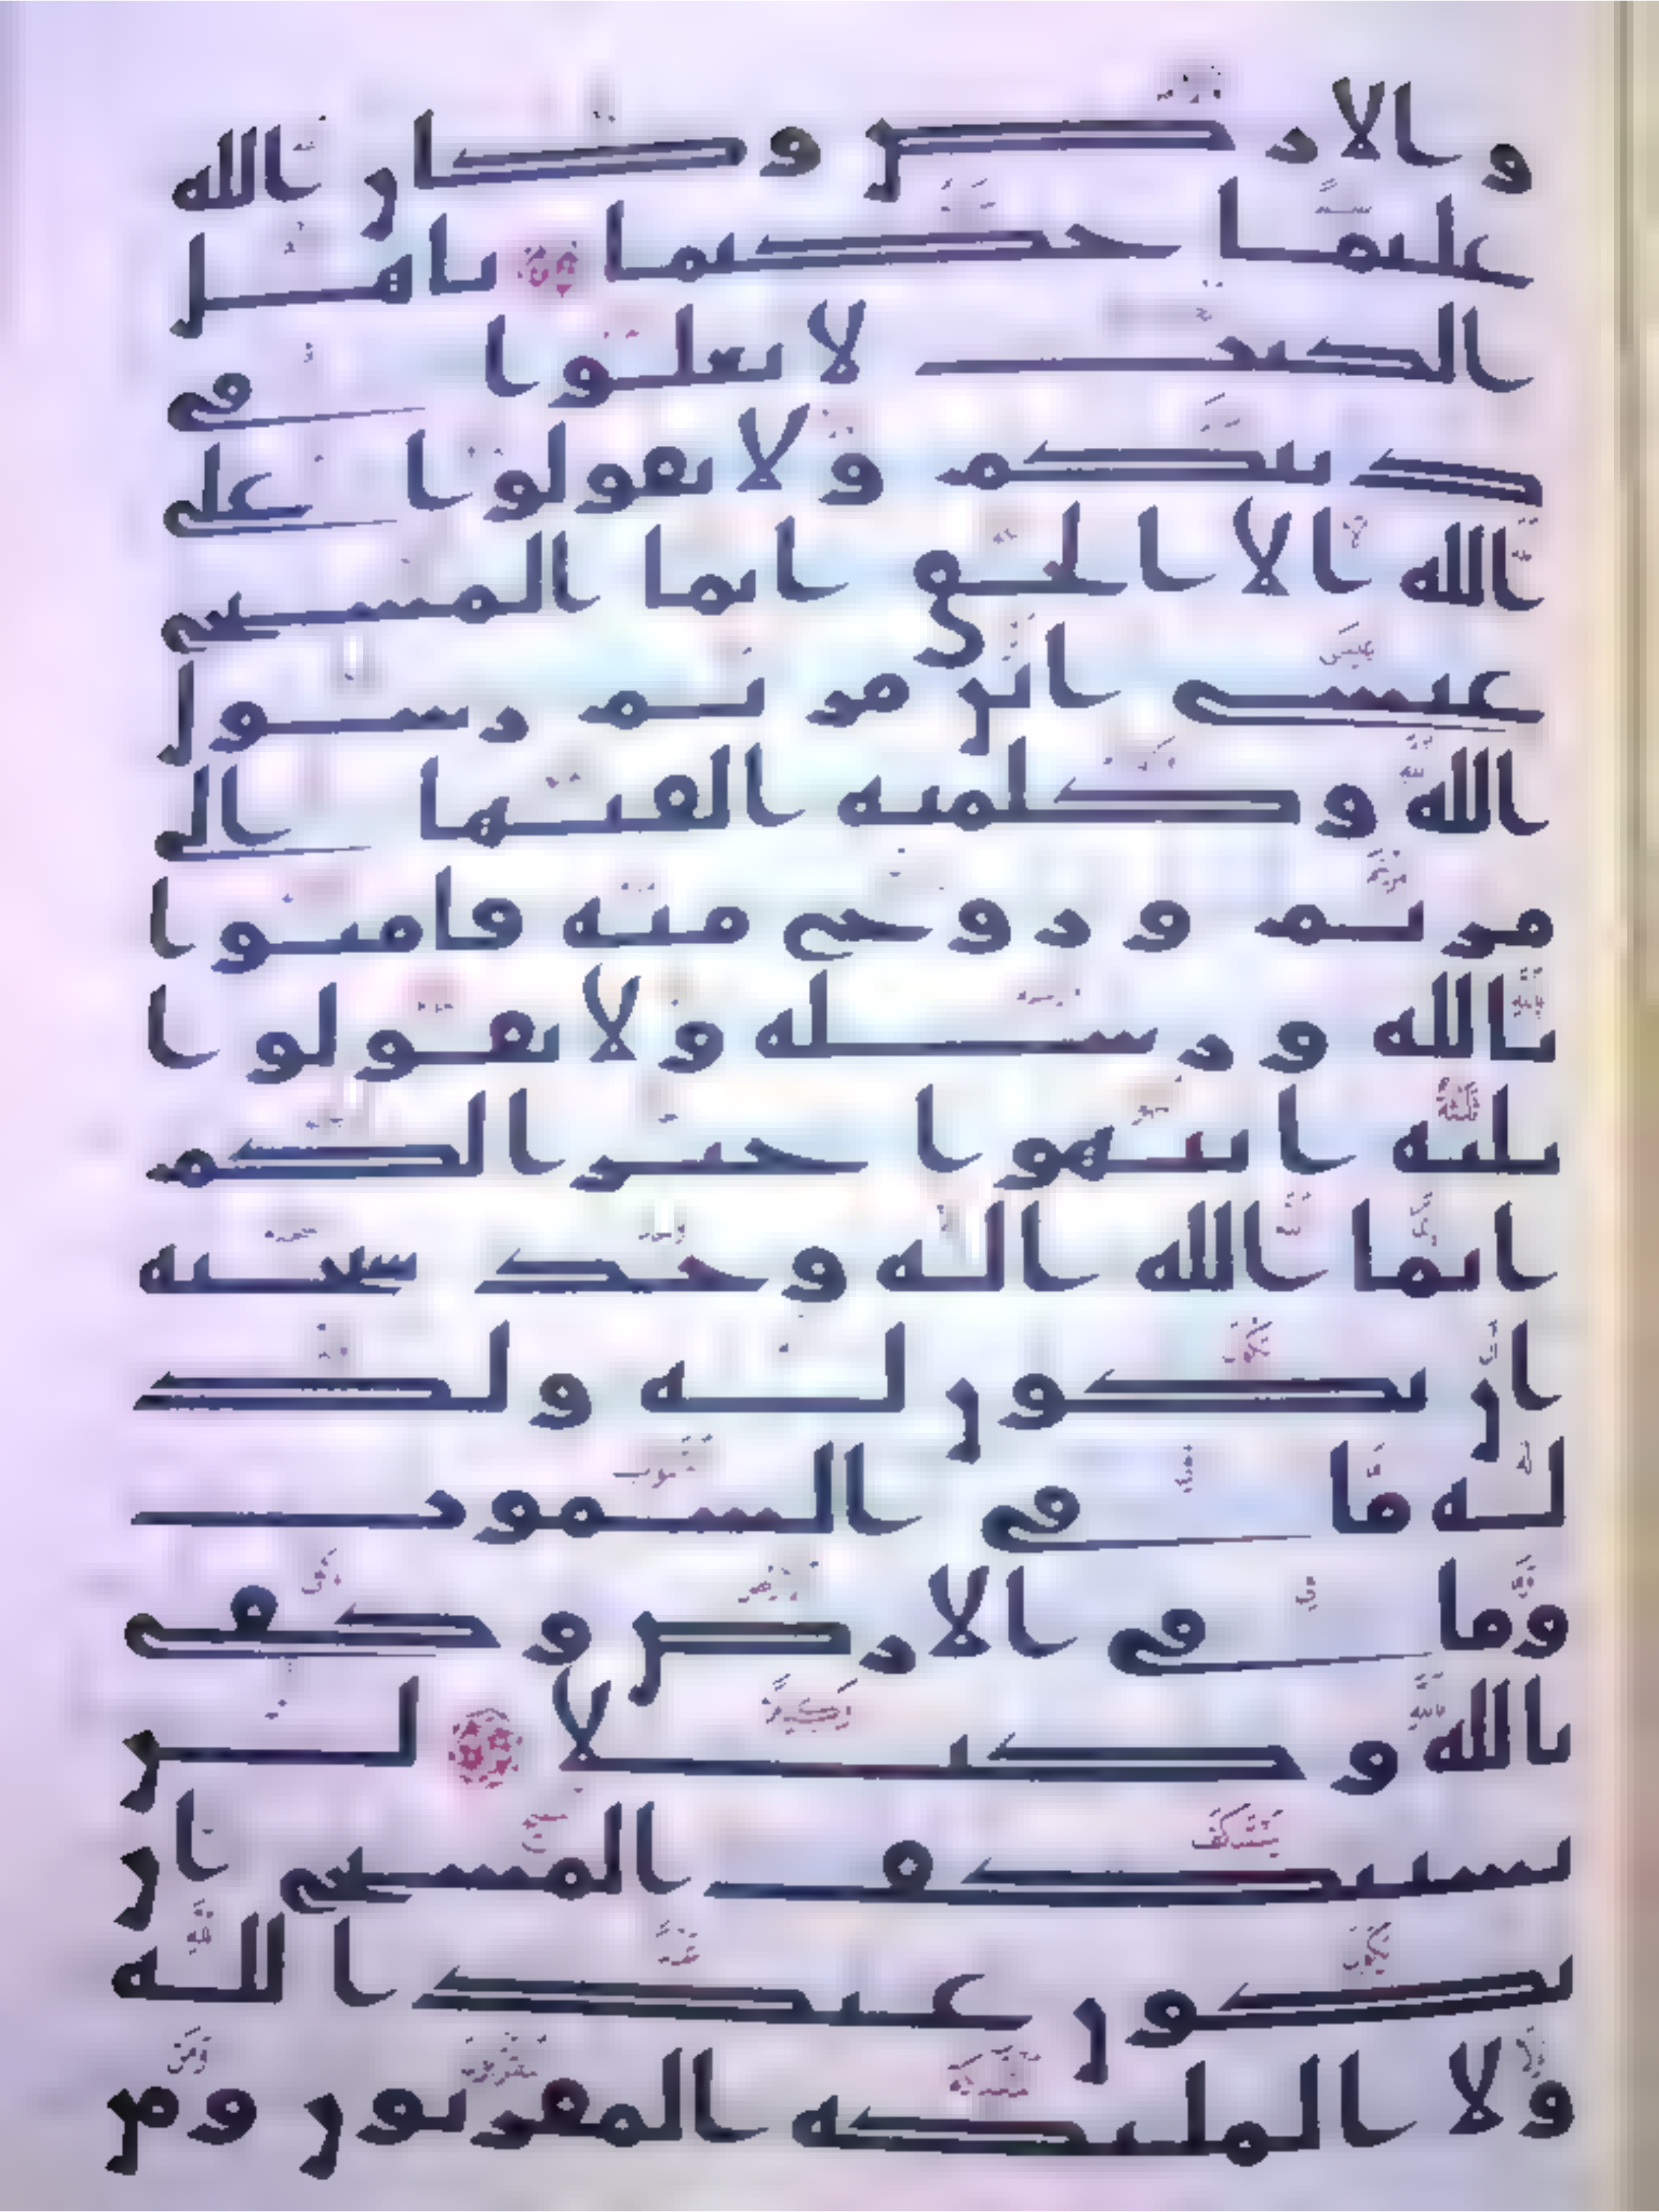 والارض وكان الله
عليما حكيما ياهل
الكتب لا تغلوا في
دينكم ولا تقولوا على
الله الا الحق انما المسيح
عيسى ابن مريم رسول
الله وكلمته القيها الى
مريم وروح منه فامنوا
بالله ورسله ولا تقولوا
ثلثة انتهوا خيرا لكم
انما الله اله وحد سبحنه
ان يكون له ولد
له ما في السموت
وما في الارض وكفى
بالله وكيلا لن
يستنكف المسيح ان
يكون عبدا لله
ولا الملئكة المقربون ومن